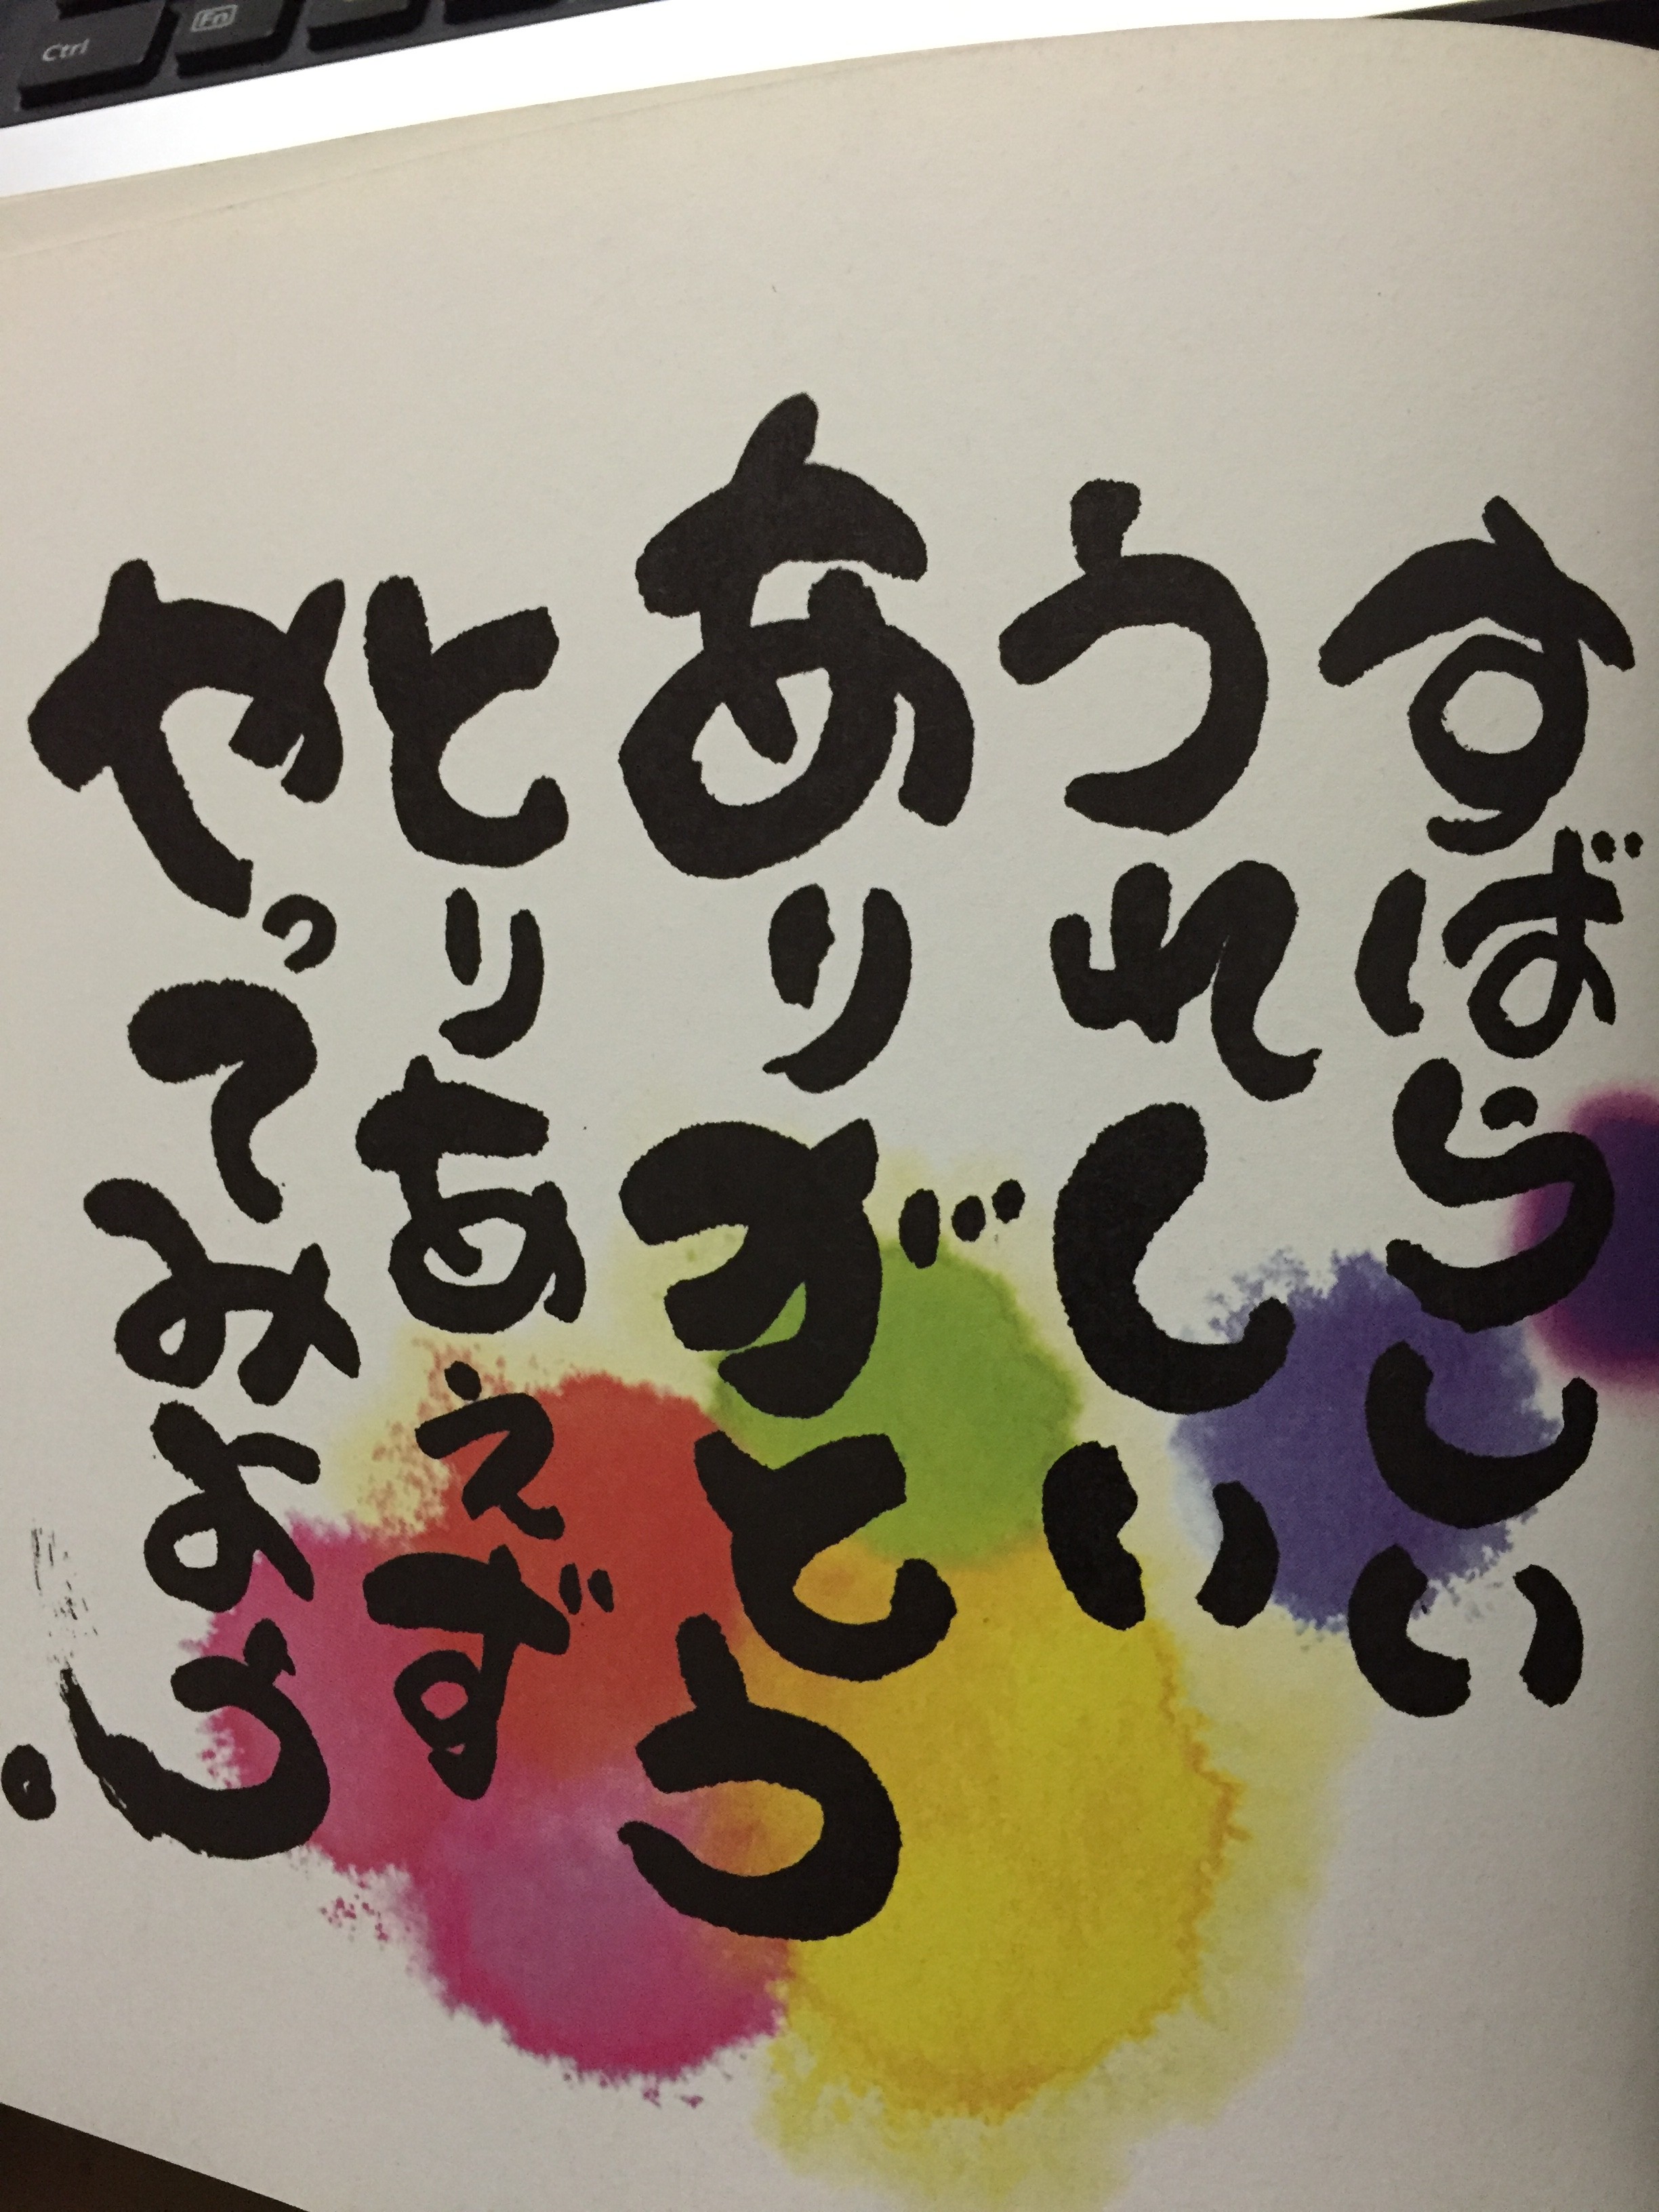 すばらしい
うれしい
ありがとう
とりあえず
やってみよう!
Ctrl
Fn